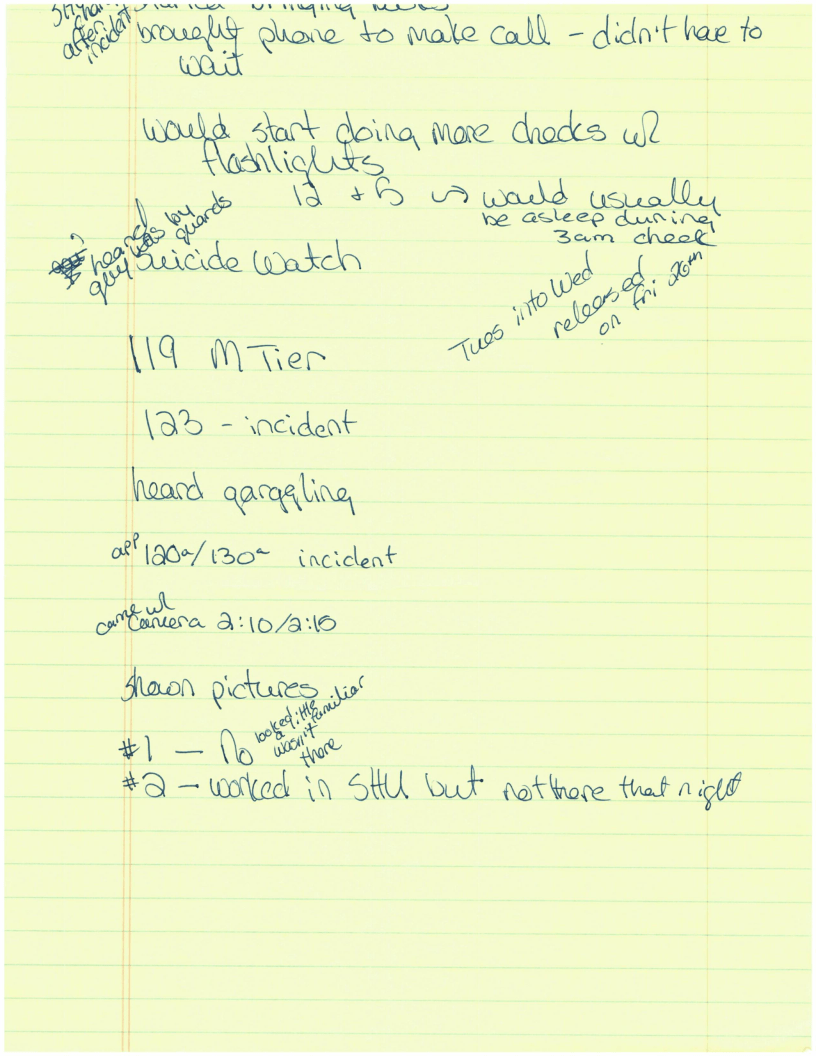 after
incident
brought phone to make call - didn't have to
wait
would start doing more checks w/
flashlights
12 + 5 → would usually
be asleep during
3am check
heard
guy was by
guards
Suicide Watch
Tues into Wed
released
on Fri 26th
119 M Tier
123 - incident
heard garggling
app 120a/130a incident
came w/
Camera 2:10/2:15
shown pictures
#1 — No
looked little
a familiar
wasn't
there
#2 - worked in SHU but not there that night